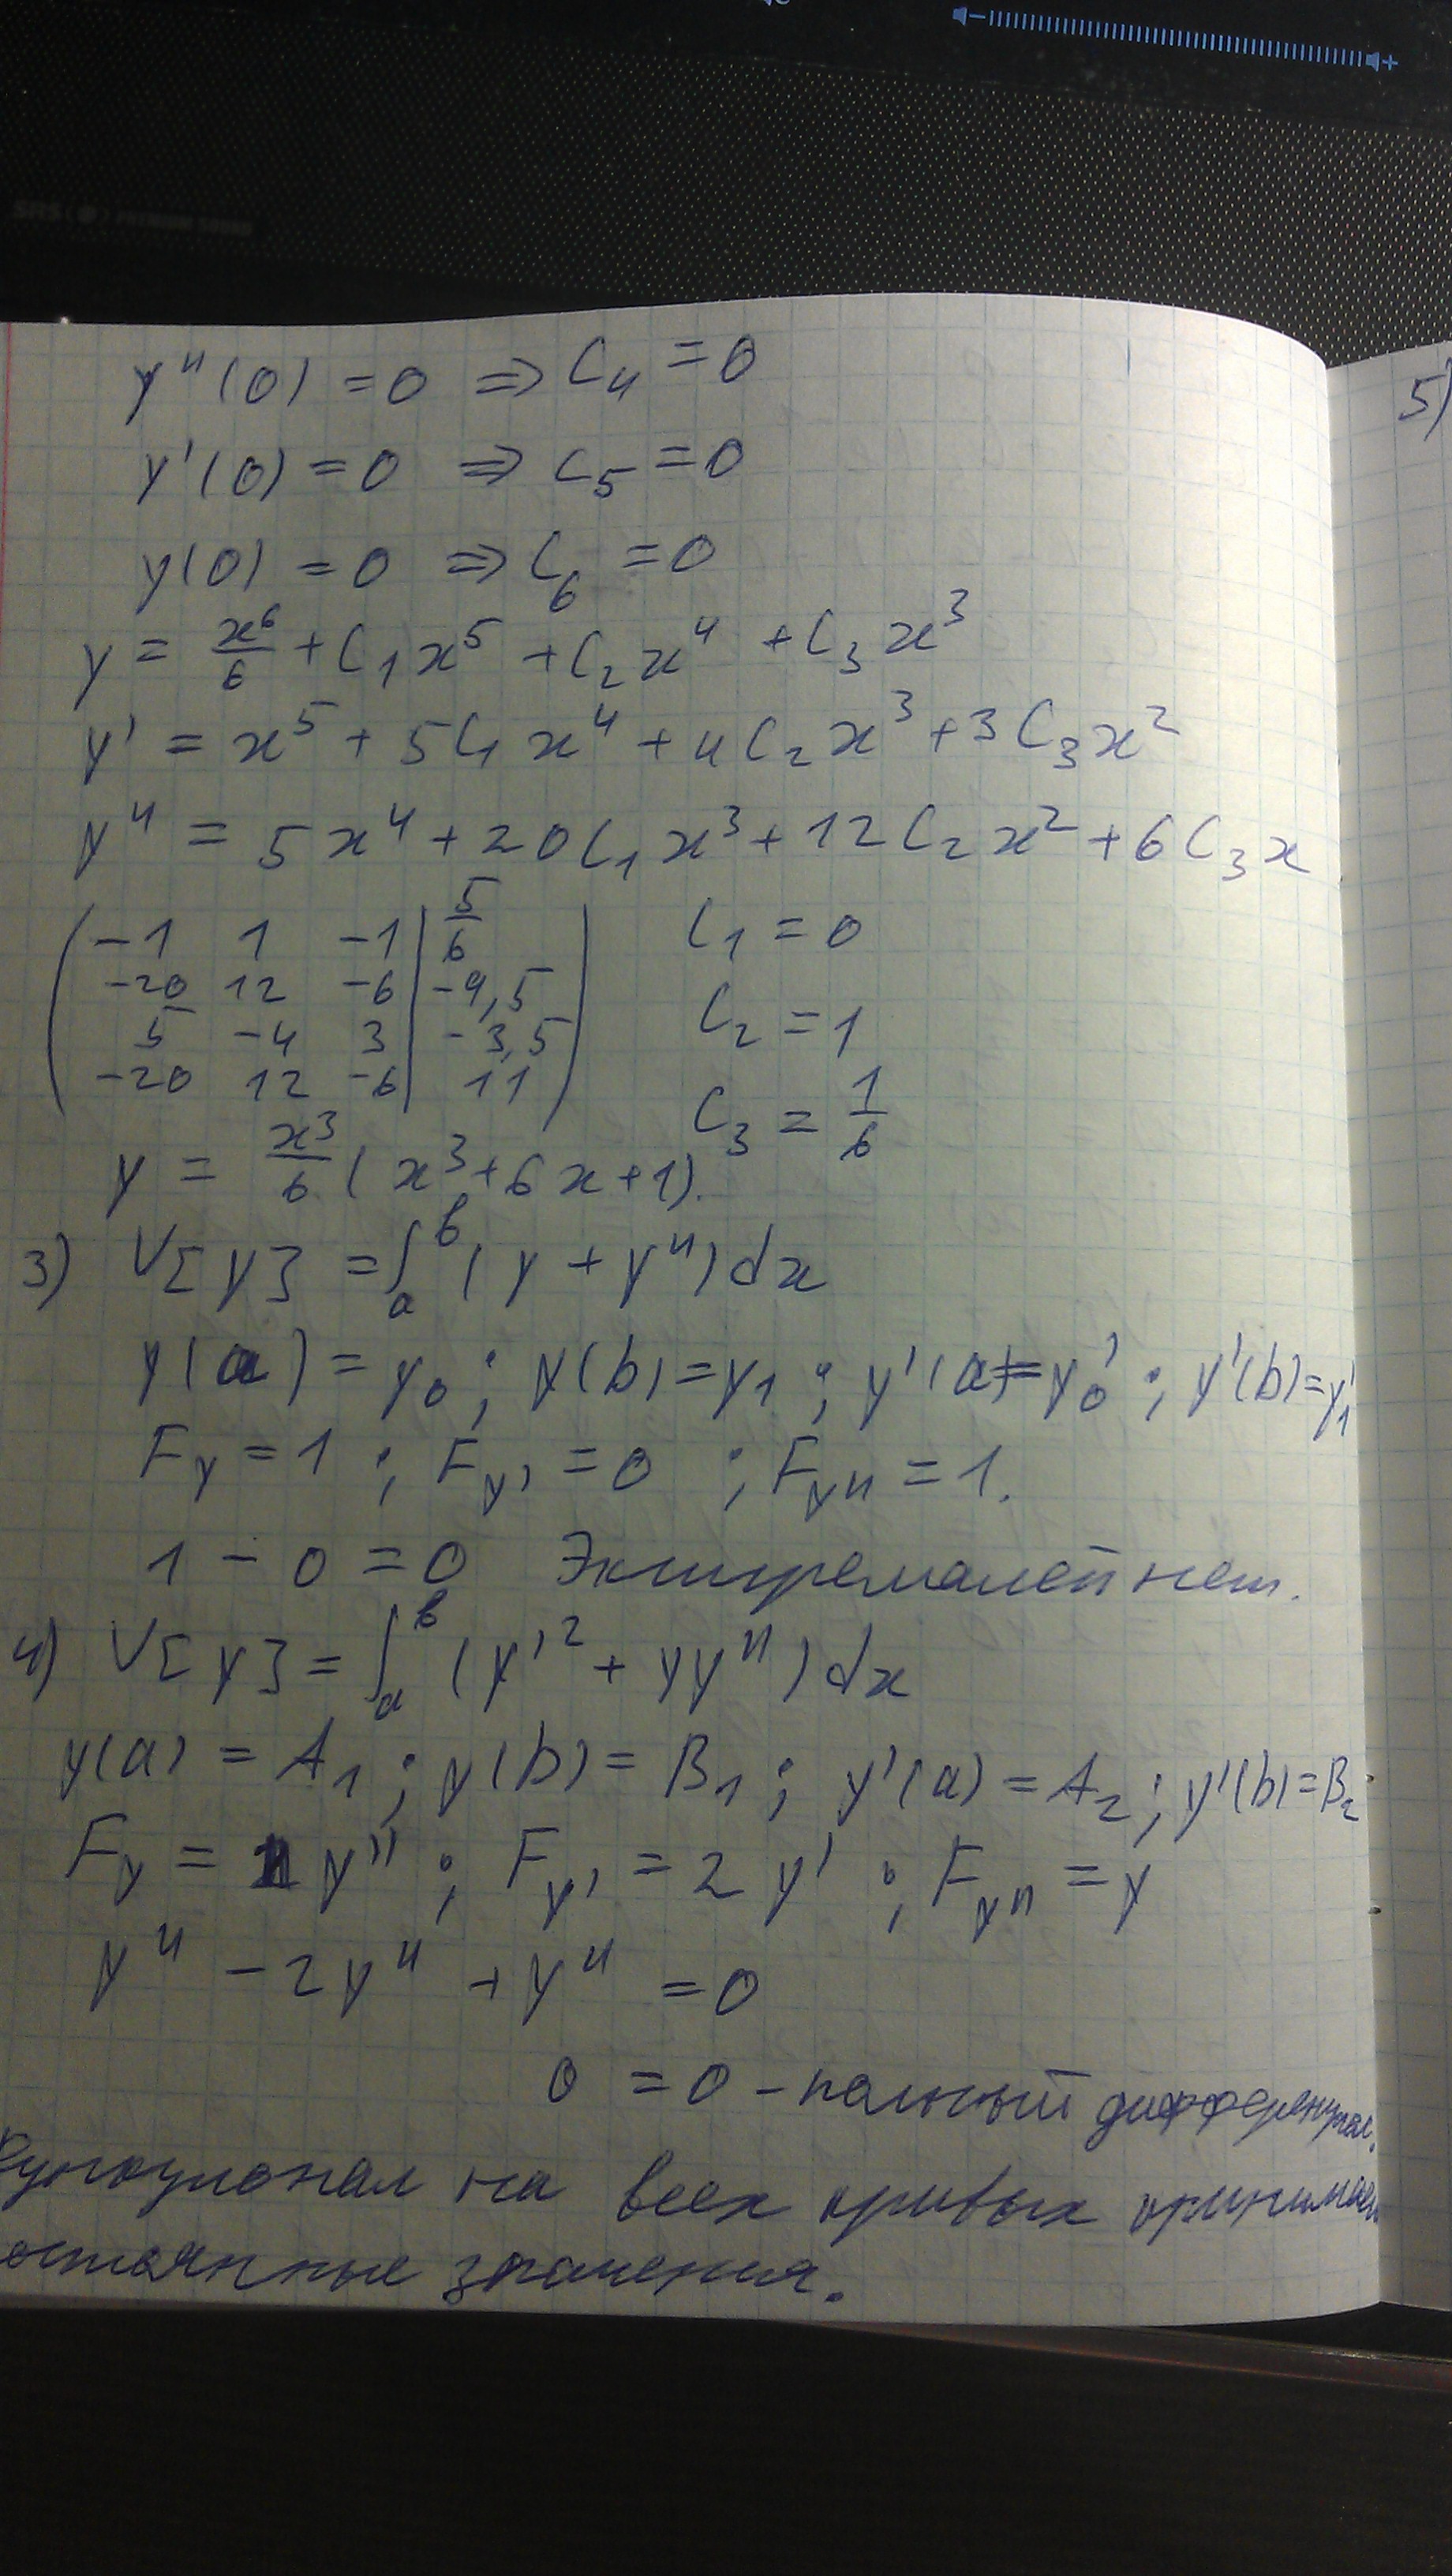 y''(0) = 0 ⇒ C₄ = 0
y'(0) = 0 ⇒ C₅ = 0
y(0) = 0 ⇒ C₆ = 0
y = x⁶/6 + C₁x⁵ + C₂x⁴ + C₃x³
y' = x⁵ + 5C₁x⁴ + 4C₂x³ + 3C₃x²
y'' = 5x⁴ + 20C₁x³ + 12C₂x² + 6C₃x
( -1 1 -1 | 5/6 ) C₁ = 0
( -20 12 -6 | -9,5 )
( 5 -4 3 | -3,5 ) C₂ = 1
( -20 12 -6 | 11 ) C₃ = 1/6
y = x³/6 (x³ + 6x + 1).
3) V[y] = ∫ₐᵇ (y + y'') dx
y(a) = y₀ ; y(b) = y₁ ; y'(a) = y₀' ; y'(b) = y₁'
F_y = 1 ; F_y' = 0 ; F_y'' = 1.
1 - 0 = 0 Экстремалей нет.
4) V[y] = ∫ₐᵇ (y'² + yy'') dx
y(a) = A₁ ; y(b) = B₁ ; y'(a) = A₂ ; y'(b) = B₂
F_y = y'' ; F_y' = 2y' ; F_y'' = y
y'' - 2y'' + y'' = 0
0 = 0 - полный дифференциал.
Функционал на всех кривых принимает
остоянные значения.
5)